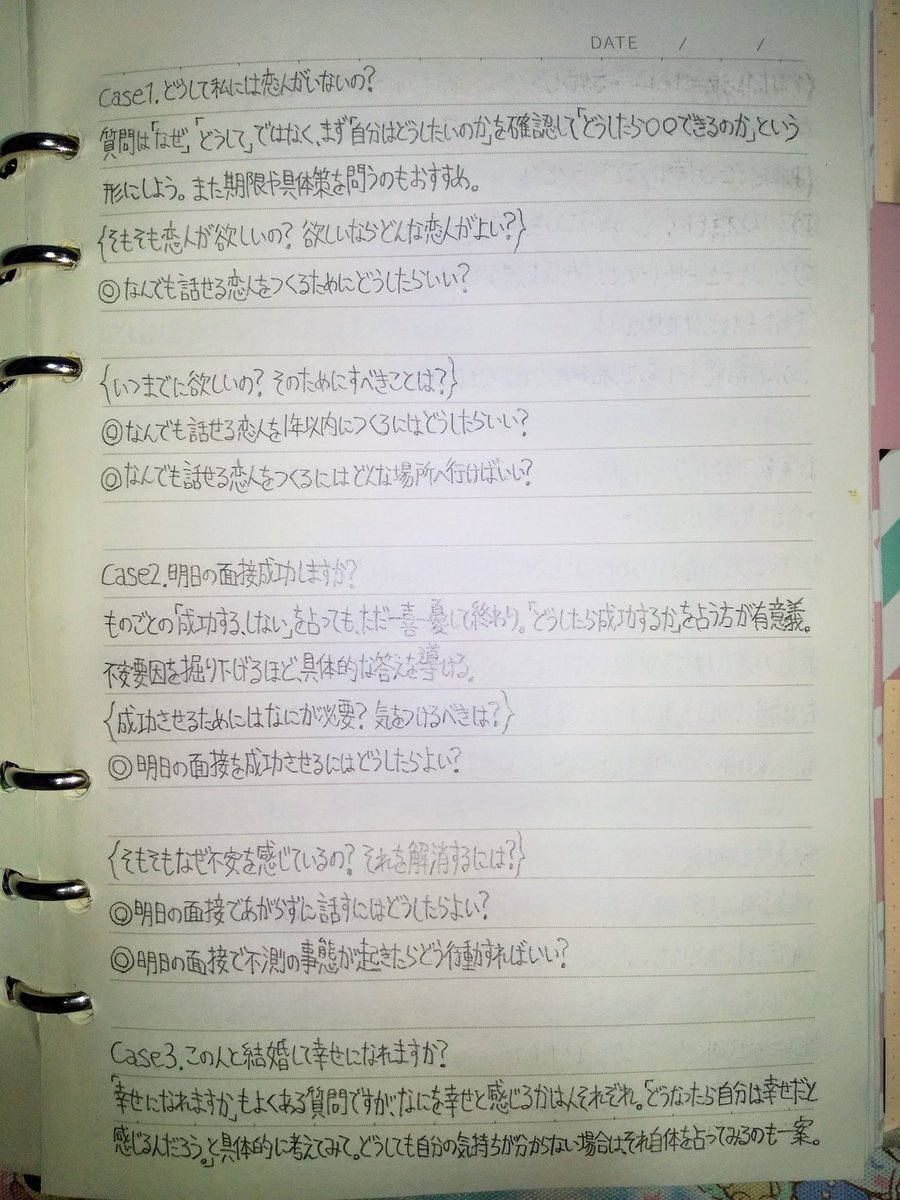 DATE / /
Case1.どうして私には恋人がいないの?
質問は「なぜ」「どうして」ではなく、まず「自分はどうしたいのか」を確認して「どうしたら〇〇できるのか」という
形にしよう。また期限や具体策を問うのもおすすめ。
{そもそも恋人が欲しいの? 欲しいならどんな恋人がよい?}
◎なんでも話せる恋人をつくるためにどうしたらいい?
{いつまでに欲しいの? そのためにすべきことは?}
◎なんでも話せる恋人を1年以内につくるにはどうしたらいい?
◎なんでも話せる恋人をつくるにはどんな場所へ行けばいい?
Case2.明日の面接成功しますか?
ものごとの「成功する、しない」を占っても、ただ一喜一憂して終わり。「どうしたら成功するか」を占う方が有意義。
不安要因を掘り下げるほど、具体的な答えを導ける。
{成功させるためにはなにが必要? 気をつけるべきは?}
◎明日の面接を成功させるにはどうしたらよい?
{そもそもなぜ不安を感じているの? それを解消するには?}
◎明日の面接であがらずに話すにはどうしたらよい?
◎明日の面接で不測の事態が起きたらどう行動すればいい?
Case3.この人と結婚して幸せになれますか?
「幸せになれますか」もよくある質問ですが、なにを幸せと感じるかは人それぞれ。「どうなったら自分は幸せだと
感じるんだろう。」と具体的に考えてみて。どうしても自分の気持ちが分からない場合は、それ自体を占ってみるのも一案。